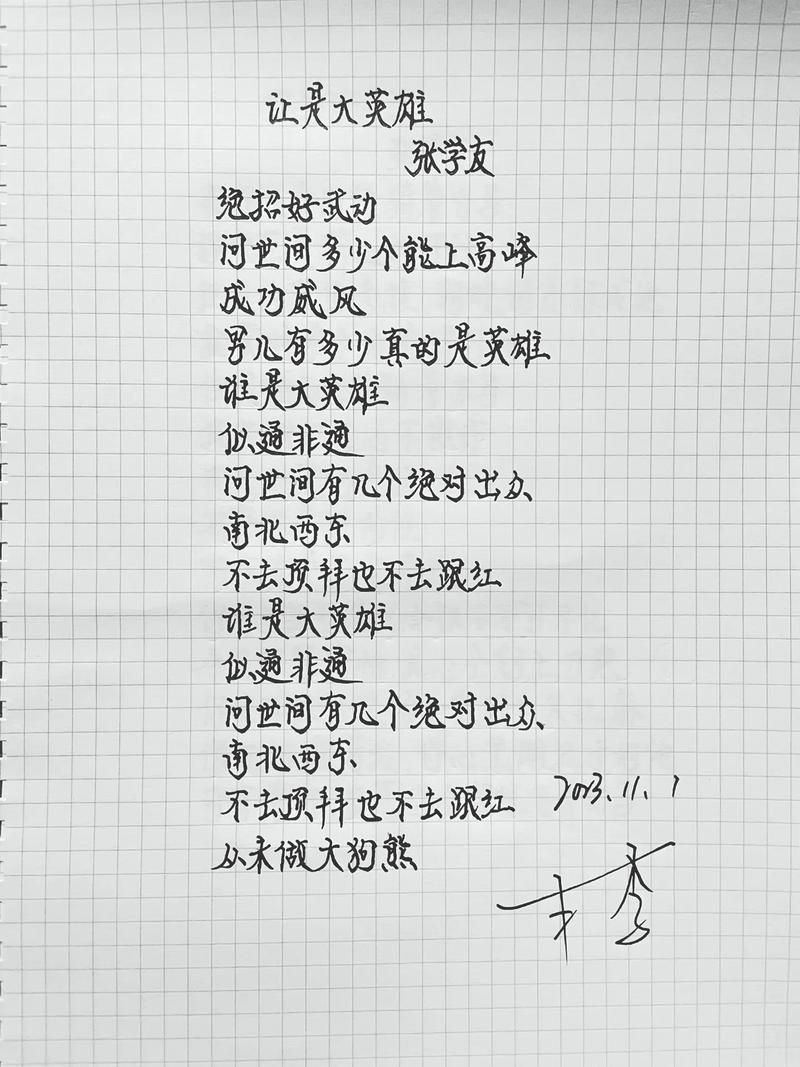 让是大英雄
张学友
绝招好武动
问世间多少个能上高峰
成功威风
男儿有多少真的是英雄
谁是大英雄
似通非通
问世间有几个绝对出众
南北西东
不去顶拜也不去跟红
谁是大英雄
似通非通
问世间有几个绝对出众
南北西东
不去顶拜也不去跟红
2023.11.1
从未做大狗熊